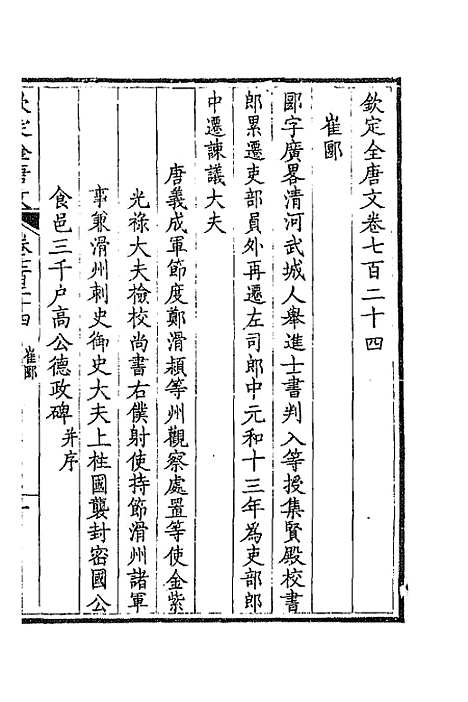 欽定全唐文卷七百二十四
崔郾
郾字廣畧清河武城人舉進士書判入等授集賢殿校書
郎累遷吏部員外再遷左司郎中元和十三年為吏部郎
中遷諫議大夫
唐義成軍節度鄭滑潁等州觀察處置等使金紫
光祿大夫檢校尚書右僕射使持節滑州諸軍
事兼滑州刺史御史大夫上柱國襲封密國公
食邑三千户高公德政碑并序
欽定全唐文 卷七百二十四 崔郾 一